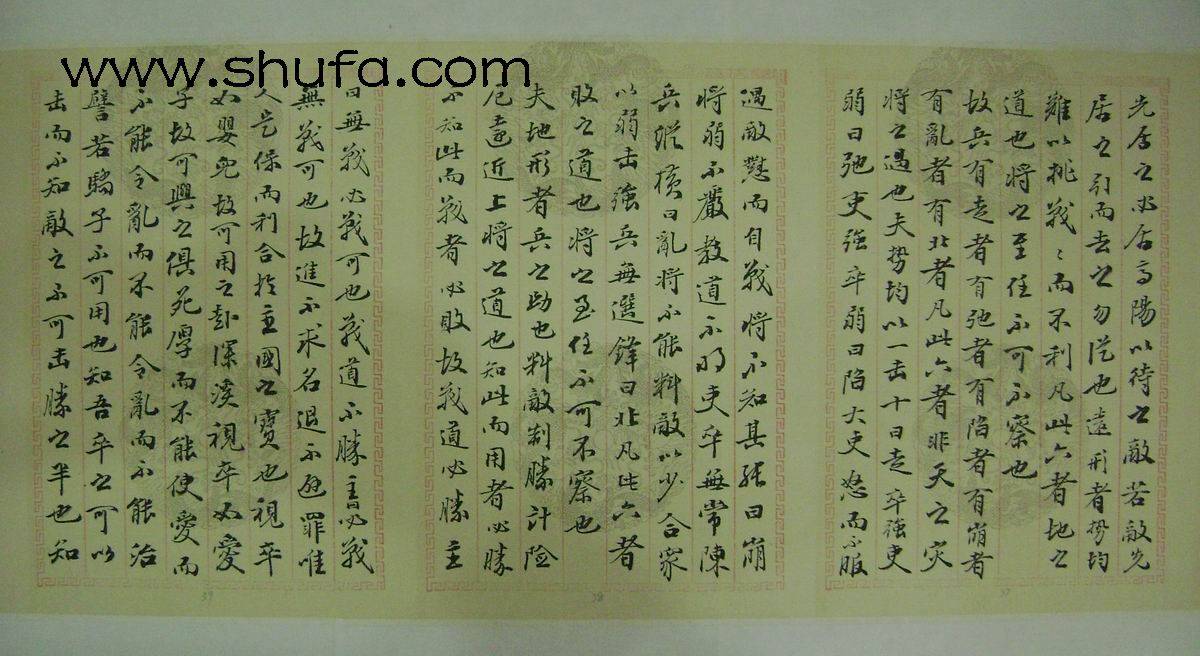 www.shufa.com
先居之必居高陽以待之敵若敵先
居之引而去之勿從也遠形者勢均
難以挑戰々而不利凡此六者地之
道也將之至任不可不察也
故兵有走者有弛者有陷者有崩者
有亂者有北者凡此六者非天之灾
將之過也夫勢均以一击十曰走卒強吏
弱曰弛吏強卒弱曰陷大吏怒而不服
遇敵懟而自戰將不知其能曰崩
將弱不嚴教道不明吏卒無常陳
兵縱橫曰亂將不能料敵以少合衆
以弱击強兵無選鋒曰北凡此六者
敗之道也將之至任不可不察也
夫地形者兵之助也料敵制勝計险
厄遠近上將之道也知此而用者必勝
不知此而戰者必敗故戰道必勝主
曰無戰必戰可也戰道不勝主曰必戰
無戰可也故進不求名退不避罪唯
人是保而利合於主國之寶也視卒
如嬰兒故可用之赴深溪視卒如愛
子故可與之俱死厚而不能使愛而
不能令亂而不能令亂而不能治
譬若驕子不可用也知吾卒之可以
击而不知敵之不可击勝之半也知
37
38
39